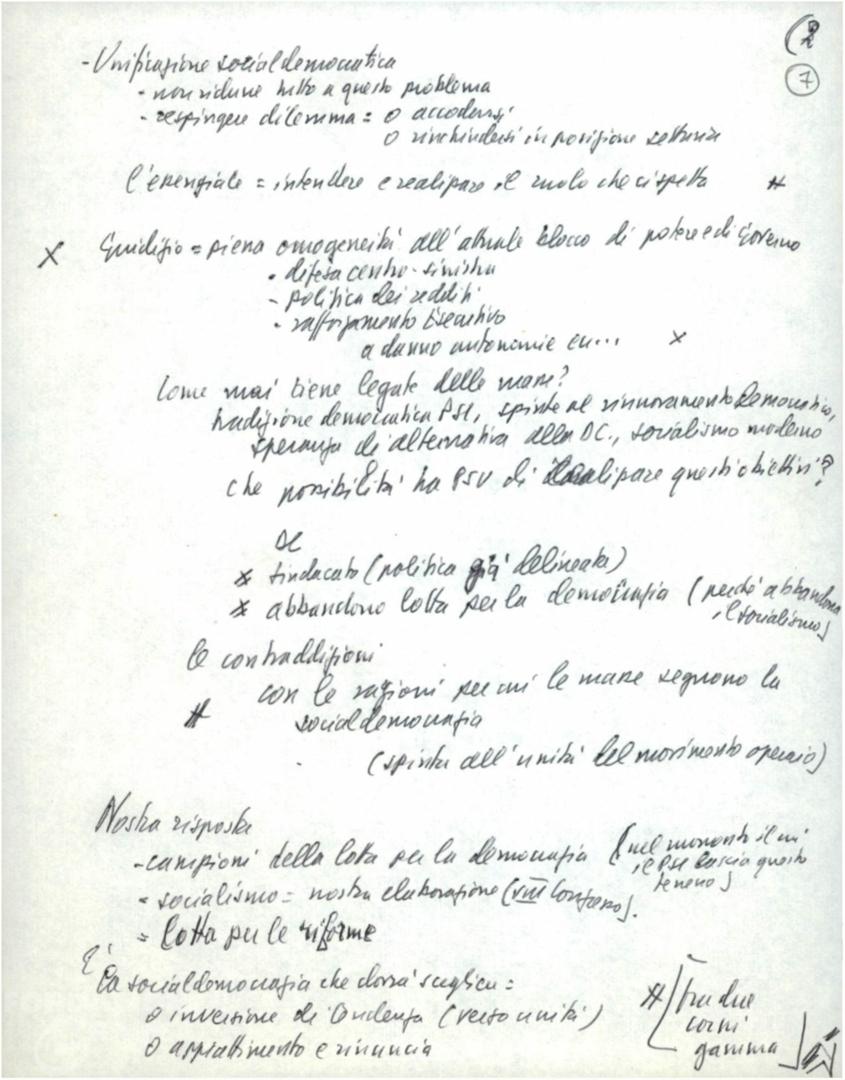 (2
7
- Unificazione socialdemocratica
- non ridurre tutto a questo problema
- respingere dilemma = o accodarsi
o rinchiudersi in posizione settaria
l'essenziale = intendere e realizzare il ruolo che ci spetta #
X Giudizio = piena omogeneità all'attuale blocco di potere e di Governo
- difesa centro-sinistra
- politica dei redditi
- rafforzamento Esecutivo
a danno autonomie ecc... X
Come mai tiene legate delle masse?
tradizione democratica PSI, spinte al rinnovamento democratico,
speranza di alternativa alla DC., socialismo moderno
che possibilità ha PSU di realizzare questi obiettivi?
X sindacato (politica già delineata)
X abbandono lotta per la democrazia (perché abbandona
il socialismo)
le contraddizioni
con le ragioni per cui le masse seguono la
# socialdemocrazia
(spinta all'unità del movimento operaio)
Nostra risposta
- campioni della lotta per la democrazia (nel momento il cui
il PSI lascia questo
terreno)
- socialismo = nostra elaborazione (VIII Congresso).
= lotta per le riforme
E' la socialdemocrazia che dovrà scegliere =
o inversione di tendenza (verso unità)
o appiattimento e rinuncia
# [tra due
corni
gamma]